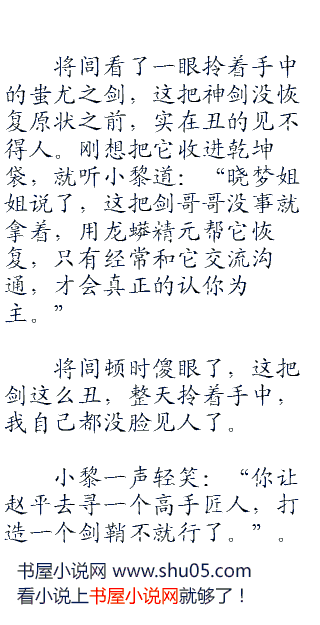 将闾看了一眼拎着手中
的蚩尤之剑，这把神剑没恢
复原状之前，实在丑的见不
得人。刚想把它收进乾坤
袋，就听小黎道：“晓梦姐
姐说了，这把剑哥哥没事就
拿着，用龙蟒精元帮它恢
复，只有经常和它交流沟
通，才会真正的认你为
主。”
将闾顿时傻眼了，这把
剑这么丑，整天拎着手中，
我自己都没脸见人了。
小黎一声轻笑：“你让
赵平去寻一个高手匠人，打
造一个剑鞘不就行了。”。
书屋小说网 www.shu05.com
看小说上书屋小说网就够了！